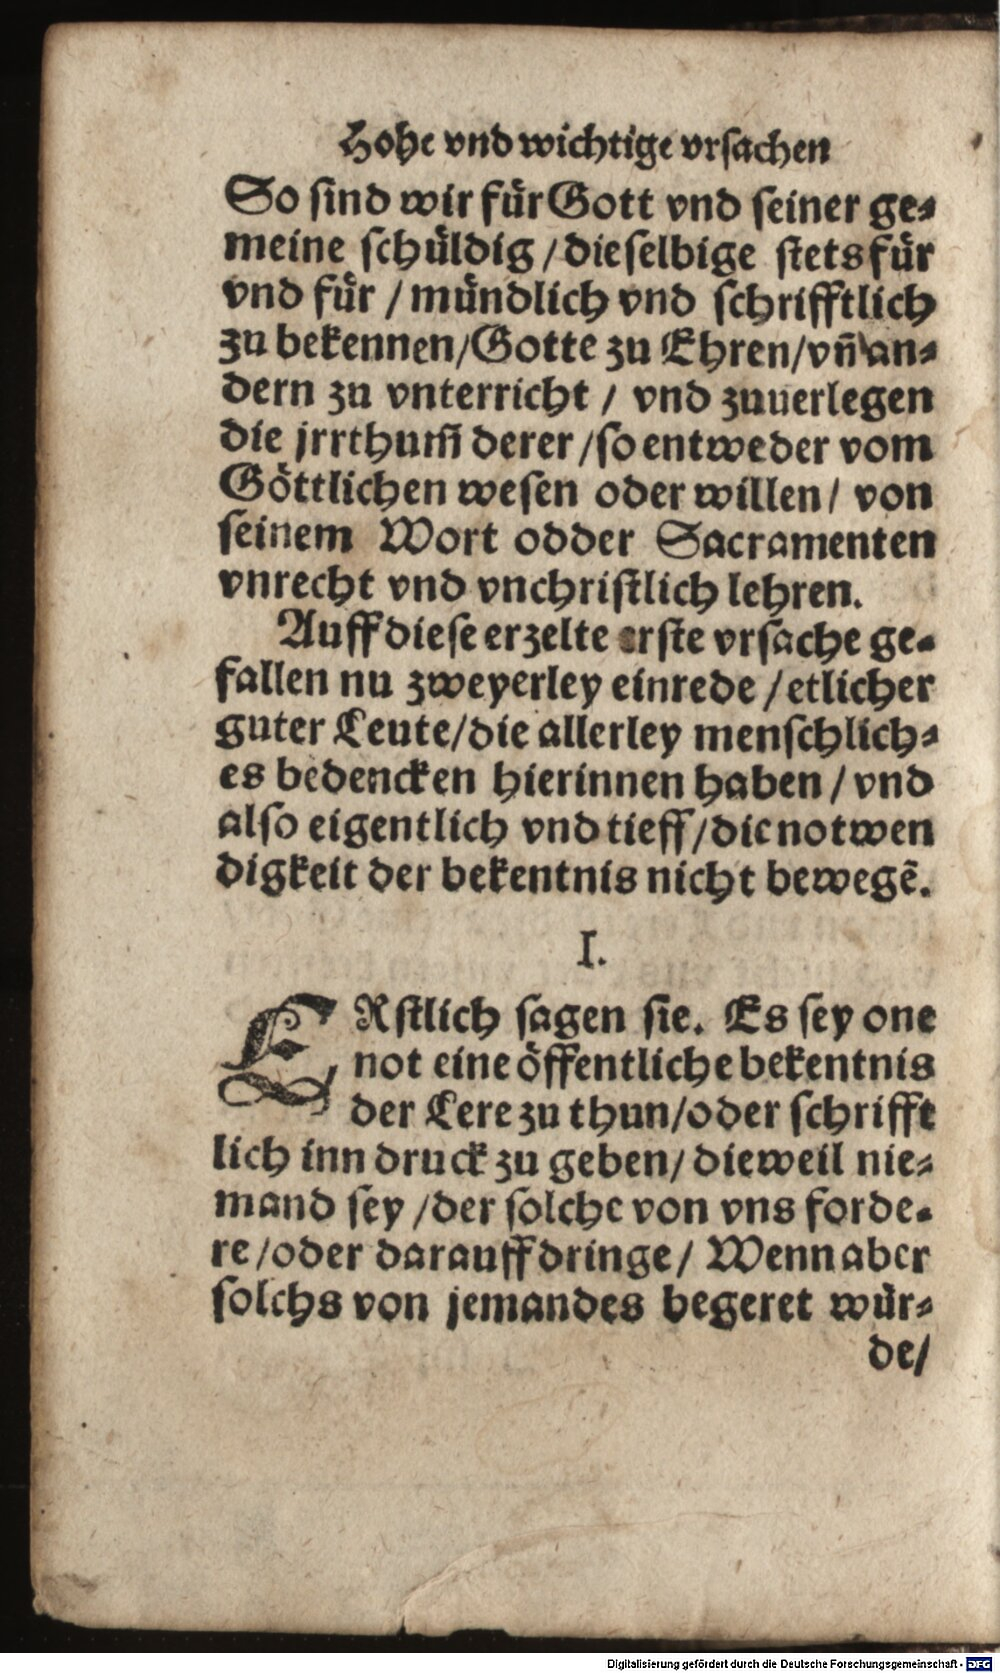 Hohe vnd wichtige vrsachen
So sind wir für Gott vnd seiner ge-
meine schüldig / dieselbige stets für
vnd für / mündlich vnd schrifftlich
zu bekennen/Gotte zu Ehren/vn̄ an-
dern zu vnterricht / vnd zuuerlegen
die jrrthum̄ derer /so entweder vom
Göttlichen wesen oder willen/ von
seinem Wort odder Sacramenten
vnrecht vnd vnchristlich lehren.
Auff diese erzelte erste vrsache ge-
fallen nu zweyerley einrede /etlicher
guter Leute/die allerley menschlich-
es bedencken hierinnen haben / vnd
also eigentlich vnd tieff/die notwen
digkeit der bekentnis nicht bewegē.
I.
ERstlich sagen sie. Es sey one
not eine öffentliche bekentnis
der Lere zu thun/oder schrifft
lich inn druck zu geben/ dieweil nie-
mand sey /der solche von vns forde-
re /oder darauff dringe/ Wenn aber
solchs von jemandes begeret wür-
de/
Digitalisierung gefördert durch die Deutsche Forschungsgemeinschaft - DFG